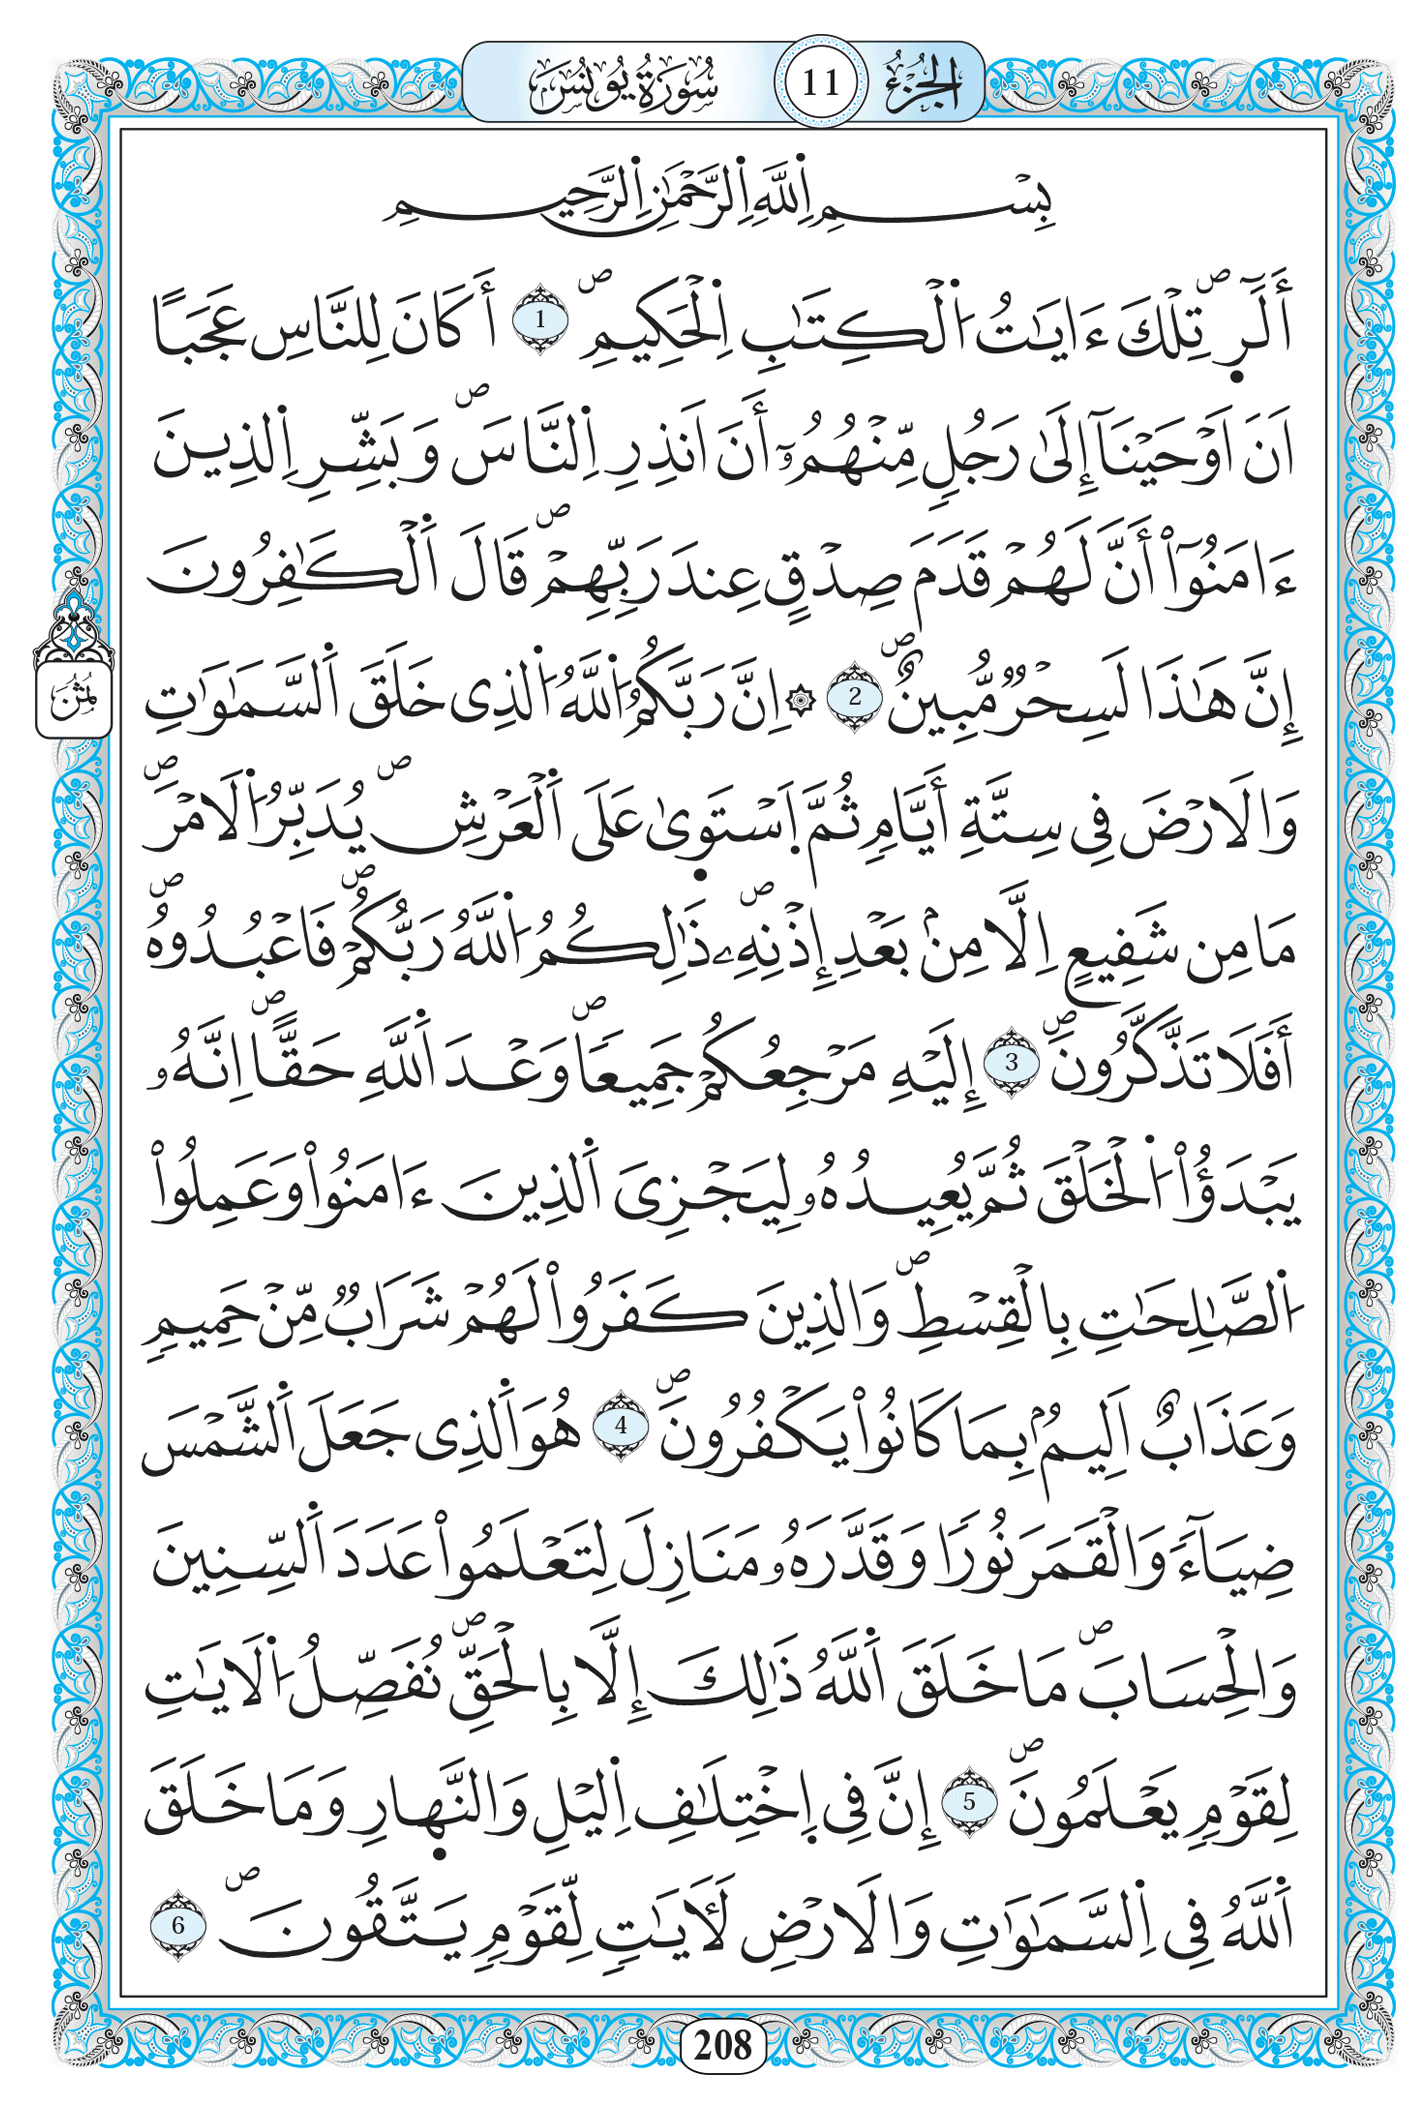 الجزء 11 سورة يونس
بِسْمِ اِ۬للَّهِ اِ۬لرَّحْمَٰنِ اِ۬لرَّحِيمِ
أَلَٓرۖ تِلْكَ ءَايَٰتُ اُ۬لْكِتَٰبِ اِ۬لْحَكِيمِۖ 1 أَكَانَ لِلنَّاسِ عَجَباً
اَنَ اَوْحَيْنَآ إِلَىٰ رَجُلٖ مِّنْهُمُۥٓ أَنَ اَنذِرِ اِ۬لنَّاسَۖ وَبَشِّرِ اِ۬لذِينَ
ءَامَنُوٓاْ أَنَّ لَهُمْ قَدَمَ صِدْقٍ عِندَ رَبِّهِمْۖ قَالَ اَ۬لْكَٰفِرُونَ
إِنَّ هَٰذَا لَسِحْرٞ مُّبِينٌۖ 2 ۞ اِنَّ رَبَّكُمُ اُ۬للَّهُ اُ۬لذِى خَلَقَ اَ۬لسَّمَٰوَٰتِ
وَالَارْضَ فِى سِتَّةِ أَيَّامٖ ثُمَّ اَ۪سْتَوىٰ عَلَى اَ۬لْعَرْشِۖ يُدَبِّرُ اُ۬لَامْرَۖ
مَا مِن شَفِيعٍ اِلَّا مِنۢ بَعْدِ إِذْنِهِۦۖ ذَٰلِكُمُ اُ۬للَّهُ رَبُّكُمْۖ فَاعْبُدُوهُۖ
أَفَلَا تَذَّكَّرُونَۖ 3 إِلَيْهِ مَرْجِعُكُمْ جَمِيعاٗۖ وَعْدَ اَ۬للَّهِ حَقّاًۖ اِنَّهُۥ
يَبْدَؤُاْ اُ۬لْخَلْقَ ثُمَّ يُعِيدُهُۥ لِيَجْزِىَ اَ۬لذِينَ ءَامَنُواْ وَعَمِلُواْ
اُ۬لصَّٰلِحَٰتِ بِالْقِسْطِۖ وَالذِينَ كَفَرُواْ لَهُمْ شَرَابٞ مِّنْ حَمِيمٖ
وَعَذَابٌ اَلِيمُۢ بِمَا كَانُواْ يَكْفُرُونَۖ 4 هُوَ اَ۬لذِى جَعَلَ اَ۬لشَّمْسَ
ضِيَآءٗ وَالْقَمَرَ نُوراٗ وَقَدَّرَهُۥ مَنَازِلَ لِتَعْلَمُواْ عَدَدَ اَ۬لسِّنِينَ
وَالْحِسَابَۖ مَا خَلَقَ اَ۬للَّهُ ذَٰلِكَ إِلَّا بِالْحَقِّۖ نُفَصِّلُ اُ۬لَايَٰتِ
لِقَوْمٖ يَعْلَمُونَۖ 5 إِنَّ فِى اِ۪خْتِلَٰفِ اِ۬ليْلِ وَالنَّهارِ وَمَا خَلَقَ
اَ۬للَّهُ فِى اِ۬لسَّمَٰوَٰتِ وَالَارْضِ لَأٓيَٰتٖ لِّقَوْمٖ يَتَّقُونَۖ 6
ثمن
208